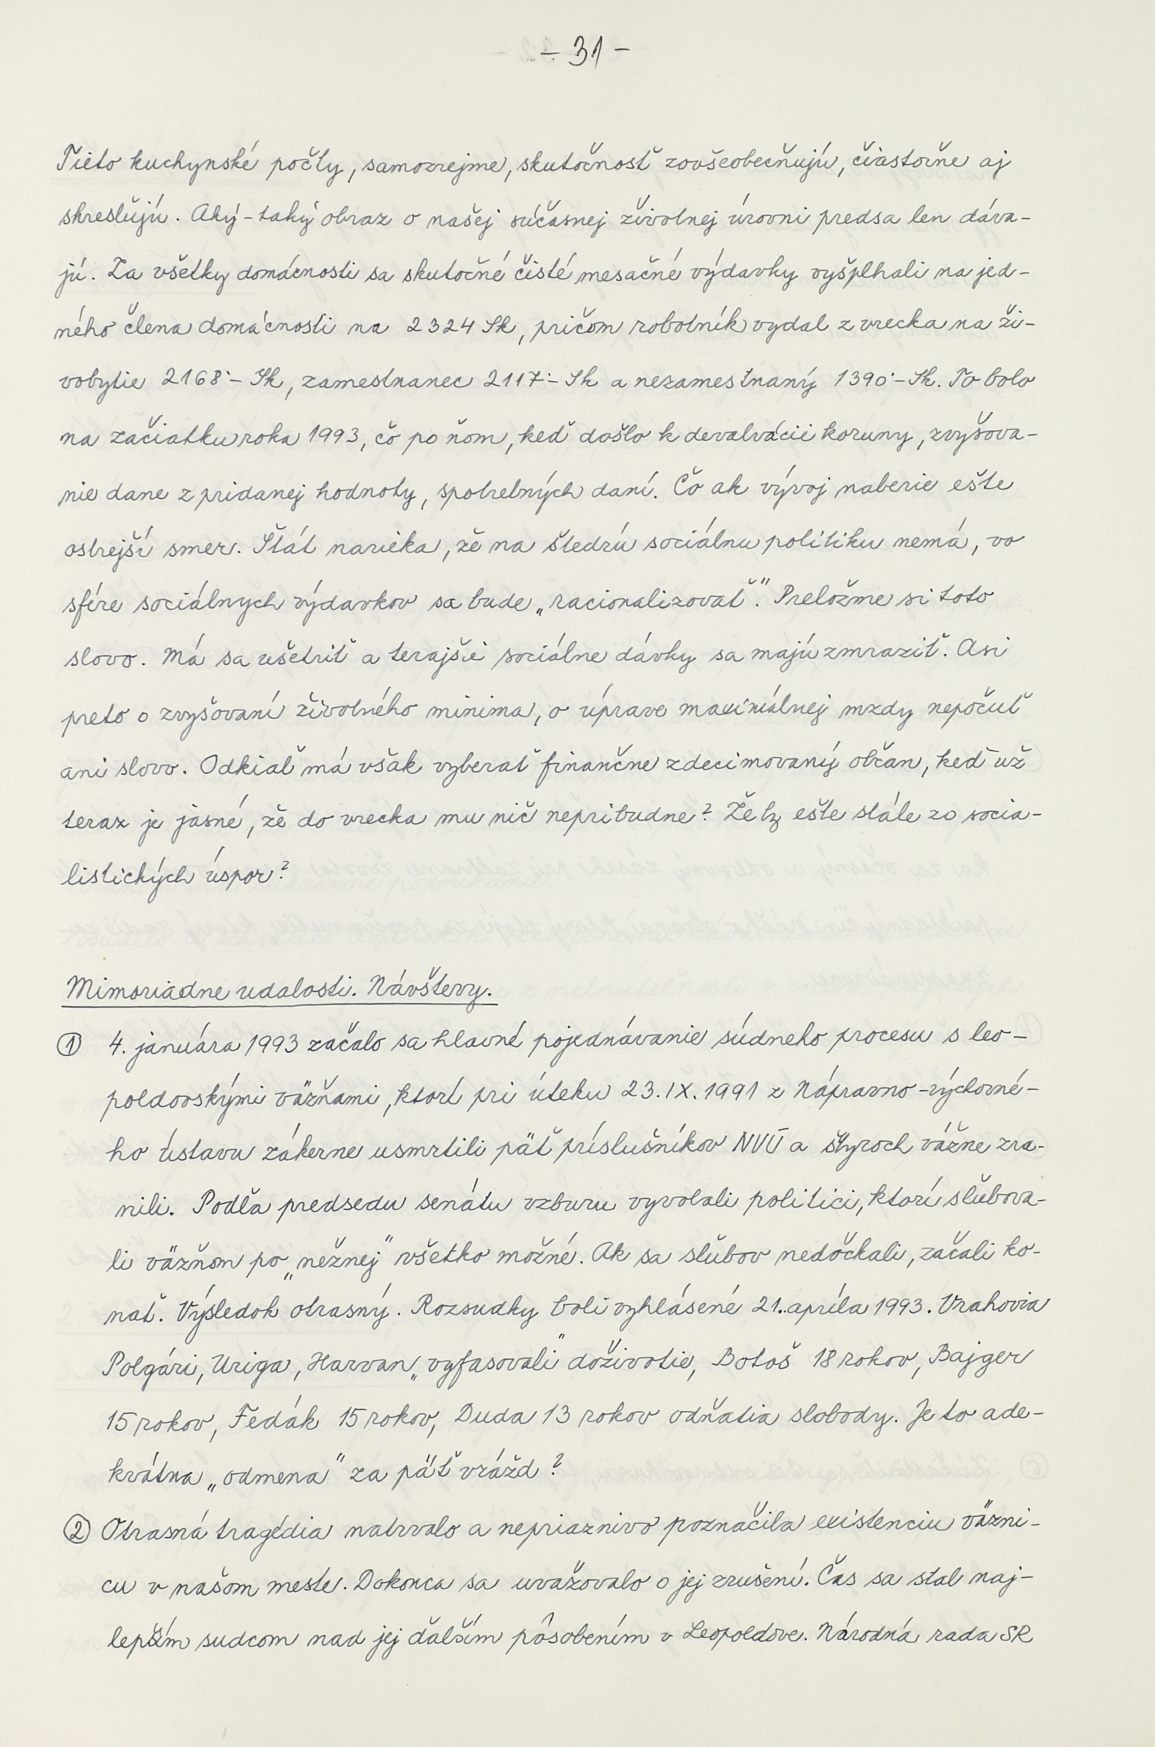 - 31 -
Tieto kuchynské počty, samozrejme, skutočnosť zovšeobecňujú, čiastočne aj
skresľujú. Aký-taký obraz o našej súčasnej životnej úrovni predsa len dáva-
jú. Za všetky domácnosti sa skutočné čisté mesačné výdavky vyšplhali na jed-
ného člena domácnosti na 2324 Sk, pričom robotník vydal z vrecka na ži-
vobytie 2168·- Sk, zamestnanec 2117·- Sk a nezamestnaný 1390·- Sk. To bolo
na začiatku roka 1993, čo po ňom, keď došlo k devalvácii koruny, zvyšova-
nie dane z pridanej hodnoty, spotrebných daní. Čo ak vývoj naberie ešte
ostrejší smer. Štát narieka, že na štedrú sociálnu politiku nemá, vo
sfére sociálnych výdavkov sa bude „racionalizovať". Preložme si toto
slovo. Má sa ušetriť a terajšie sociálne dávky sa majú zmraziť. Asi
preto o zvyšovaní životného minima, o úprave maximálnej mzdy nepočuť
ani slovo. Odkiaľ má však vyberať finančne zdecimovaný občan, keď už
teraz je jasné, že do vrecka mu nič nepribudne? Žeby ešte stále zo socia-
listických úspor?
Mimoriadne udalosti. Návštevy.
① 4. januára 1993 začalo sa hlavné pojednávanie súdneho procesu s leo-
poldovskými väzňami, ktorí pri úteku 23. IX. 1991 z Nápravno-výchovné-
ho ústavu zákerne usmrtili päť príslušníkov NVÚ a štyroch vážne zra-
nili. Podľa predsedu senátu vzburu vyvolali politici, ktorí sľubova-
li väzňom po „nežnej" všetko možné. Ak sa sľubov nedočkali, začali ko-
nať. Výsledok otrasný. Rozsudky boli vyhlásené 21. apríla 1993. Vrahovia
Polgári, Uriga, Harvan „vyfasovali" doživotie, Botoš 18 rokov, Bajger
15 rokov, Fedák 15 rokov, Duda 13 rokov odňatia slobody. Je to ade-
kvátna „odmena" za päť vrážd?
② Otrasná tragédia natrvalo a nepriaznivo poznačila existenciu väzni-
cu v našom meste. Dokonca sa uvažovalo o jej zrušení. Čas sa stal naj-
lepším sudcom nad jej ďalším pôsobením v Leopoldove. Národná rada SR